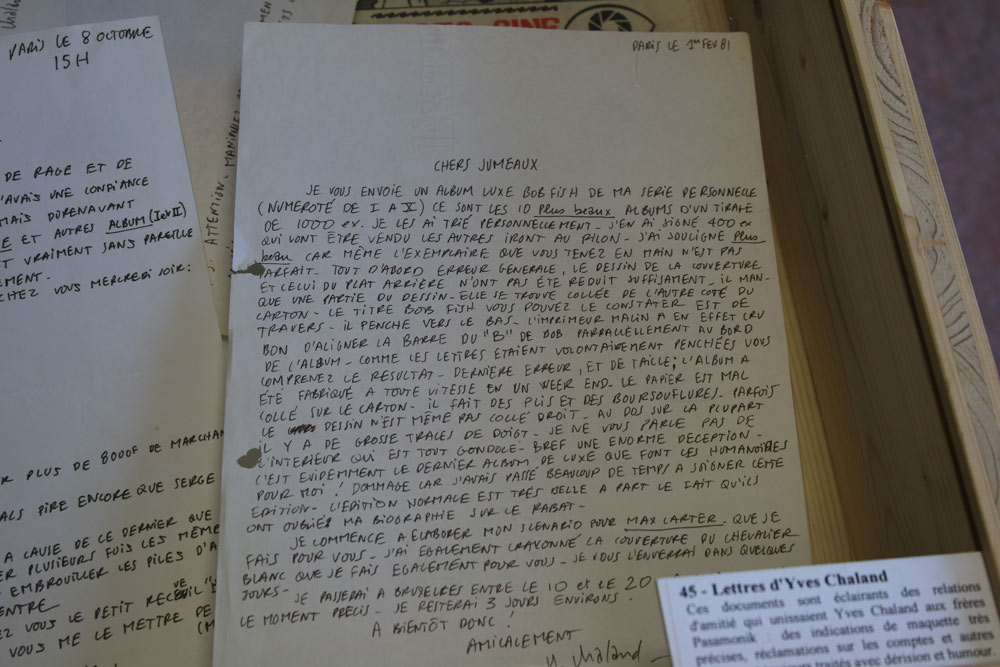 PARIS LE 8 OCTOBRE
15H
DE RAGE ET DE
AVAIS UNE CONFIANCE
MAIS DORENAVANT
ET AUTRES ALBUM (I et II)
VRAIMENT SANS PAREILLE
EMENT.
CHEZ VOUS MERCREDI SOIR:
PLUS DE 8000F DE MARCHAN
PIRE ENCORE QUE SERGE
A CAUSE DE CE DERNIER QUE
PLUSIEURS FOIS LES MÊME
EMBROUILLER LES PILES D'A
ENTRE
VOUS LE PETIT RECUEIL
VOUS ME LE METTRE DE
ATTENTION. MANIABLES
CINE
PARIS LE 1er FEV 81
CHERS JUMEAUX
JE VOUS ENVOIE UN ALBUM LUXE BOB FISH DE MA SERIE PERSONNELLE
(NUMEROTÉ DE I A X) CE SONT LES 10 plus beaux ALBUMS D'UN TIRAGE
DE 1000 ex. JE LES AI TRIÉ PERSONNELLEMENT - J'EN AI SIGNÉ 400 ex
QUI VONT ÊTRE VENDU LES AUTRES IRONT AU PILON - J'AI SOULIGNÉ plus
beau CAR MÊME L'EXEMPLAIRE QUE VOUS TENEZ EN MAIN N'EST PAS
PARFAIT - TOUT D'ABORD ERREUR GENERALE, LE DESSIN DE LA COUVERTURE
ET CELUI DU PLAT ARRIÈRE N'ONT PAS ÉTÉ REDUIT SUFFISAMENT, IL MAN-
QUE UNE PARTIE DU DESSIN - ELLE SE TROUVE COLLÉE DE L'AUTRE COTÉ DU
CARTON - LE TITRE BOB FISH VOUS POUVEZ LE CONSTATER EST DE
TRAVERS - IL PENCHE VERS LE BAS - L'IMPRIMEUR MALIN A EN EFFET CRU
BON D'ALIGNER LA BARRE DU "B" DE BOB PARRALLÈLEMENT AU BORD
DE L'ALBUM - COMME LES LETTRES ÉTAIENT VOLONTAIREMENT PENCHÉES VOUS
COMPRENEZ LE RESULTAT - DERNIÈRE ERREUR, ET DE TAILLE; L'ALBUM A
ÉTÉ FABRIQUÉ A TOUTE VITESSE EN UN WEEK END - LE PAPIER EST MAL
COLLÉ SUR LE CARTON - IL FAIT DES PLIS ET DES BOURSOUFLURES - PARFOIS
LE DESSIN N'EST MÊME PAS COLLÉ DROIT - AU DOS SUR LA PLUPART
IL Y A DE GROSSE TRACES DE DOIGT - JE NE VOUS PARLE PAS DE
L'INTERIEUR QUI EST TOUT GONDOLÉ - BREF UNE ENORME DÉCEPTION -
C'EST EVIDEMMENT LE DERNIER ALBUM DE LUXE QUE FONT LES HUMANOÏDES
POUR MOI! DOMMAGE CAR J'AVAIS PASSÉ BEAUCOUP DE TEMPS A SOIGNER CETTE
EDITION - L'EDITION NORMALE EST TRÈS BELLE A PART LE FAIT QU'ILS
ONT OUBLIÉS MA BIOGRAPHIE SUR LE RABAT -
JE COMMENCE A ELABORER MON SCENARIO POUR MAX CARTER QUE JE
FAIS POUR VOUS - J'AI EGALEMENT CRAYONNÉ LA COUVERTURE DU CHEVALIER
BLANC QUE JE FAIS EGALEMENT POUR VOUS - JE VOUS L'ENVERRAI DANS QUELQUES
JOURS - JE PASSERAI A BRUXELLES ENTRE LE 10 et LE 20
LE MOMENT PRECIS - JE RESTERAI 3 JOURS ENVIRONS!
A BIENTÔT DONC!
AMICALEMENT
Y. Chaland
45 - Lettres d'Yves Chaland
Ces documents sont éclairants des relations
d'amitié qui unissaient Yves Chaland aux frères
Pasamonik : des indications de maquette très
précises, réclamations sur les comptes et autres
traités avec dérision et humour.